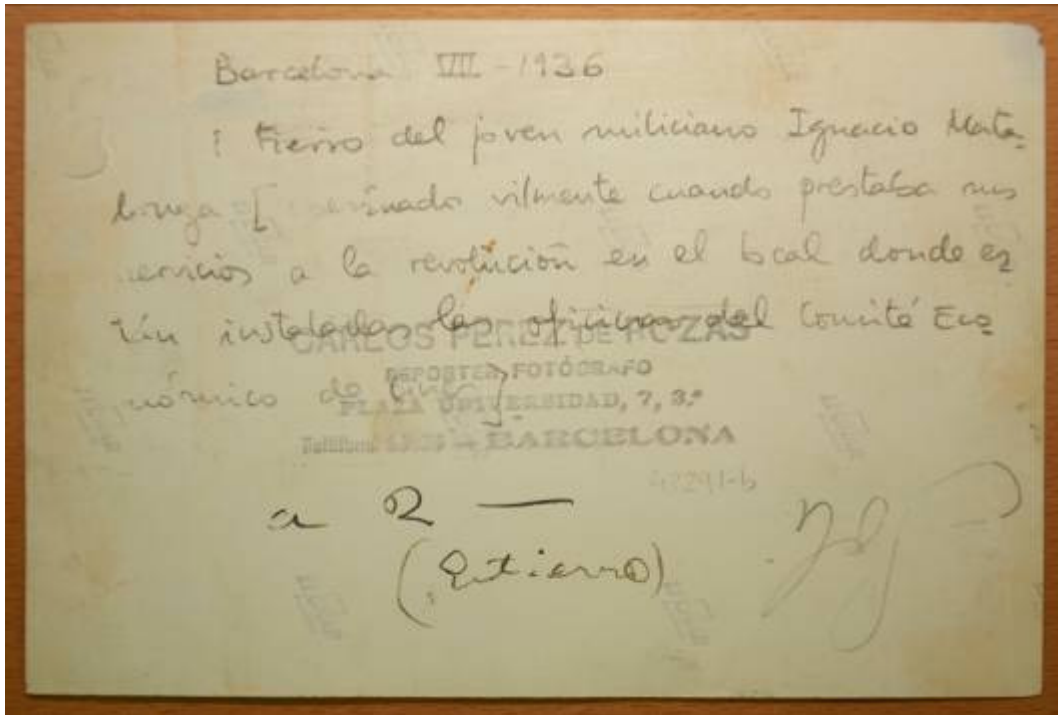 Barcelona VII - 1936
tierro del joven miliciano Ignacio Mata-
[ sinado vilmente cuando prestaba sus
servicios a la revolución en el local donde es
tán instaladas las oficinas del Comité Eco
nómico de Cines]
CARLOS PEREZ DE ROZAS
REPORTER FOTÓGRAFO
PLAZA UNIVERSIDAD, 7, 3.º
Teléfono - BARCELONA
42291-b
a 2 —
(Entierro)